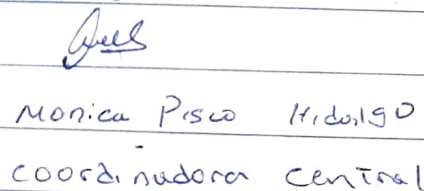 Monica Pisco Hidalgo
coordinadora central